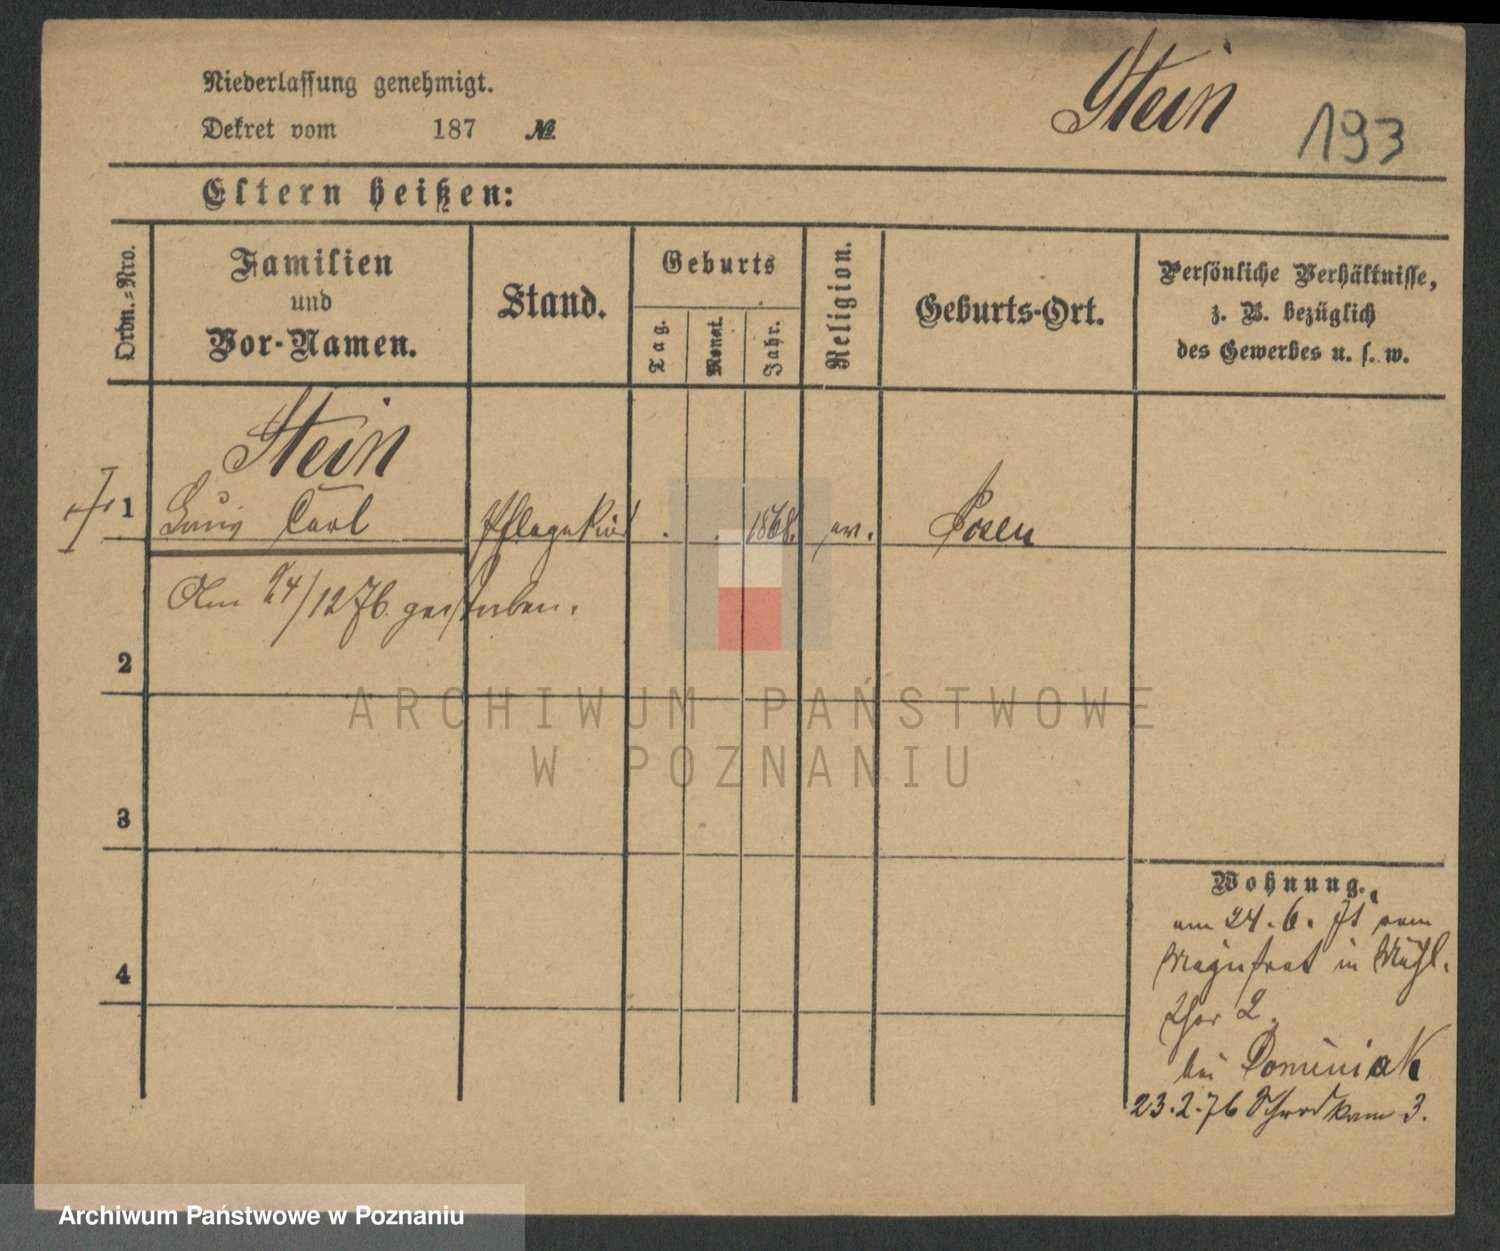 Niederlassung genehmigt.
Dekret vom 187 №
Stein
193
Eltern heißen:
Ordn.=Nro.
Familien
und
Vor-Namen.
Stand.
Geburts
Tag.
Monat.
Jahr.
Religion.
Geburts-Ort.
Persönliche Verhältnisse,
z. B. bezüglich
des Gewerbes u. s. w.
Stein
1 Carl Pflegekind 1868. ev. Posen
Am 24/12 76. gestorben.
2
3
4
Wohnung.
am 24. 6. 71 vom
Magistrat in Mühl.
thor 2.
bei Dominiak
23.2.76 3.
ARCHIWUM PAŃSTWOWE
W POZNANIU
Archiwum Państwowe w Poznaniu